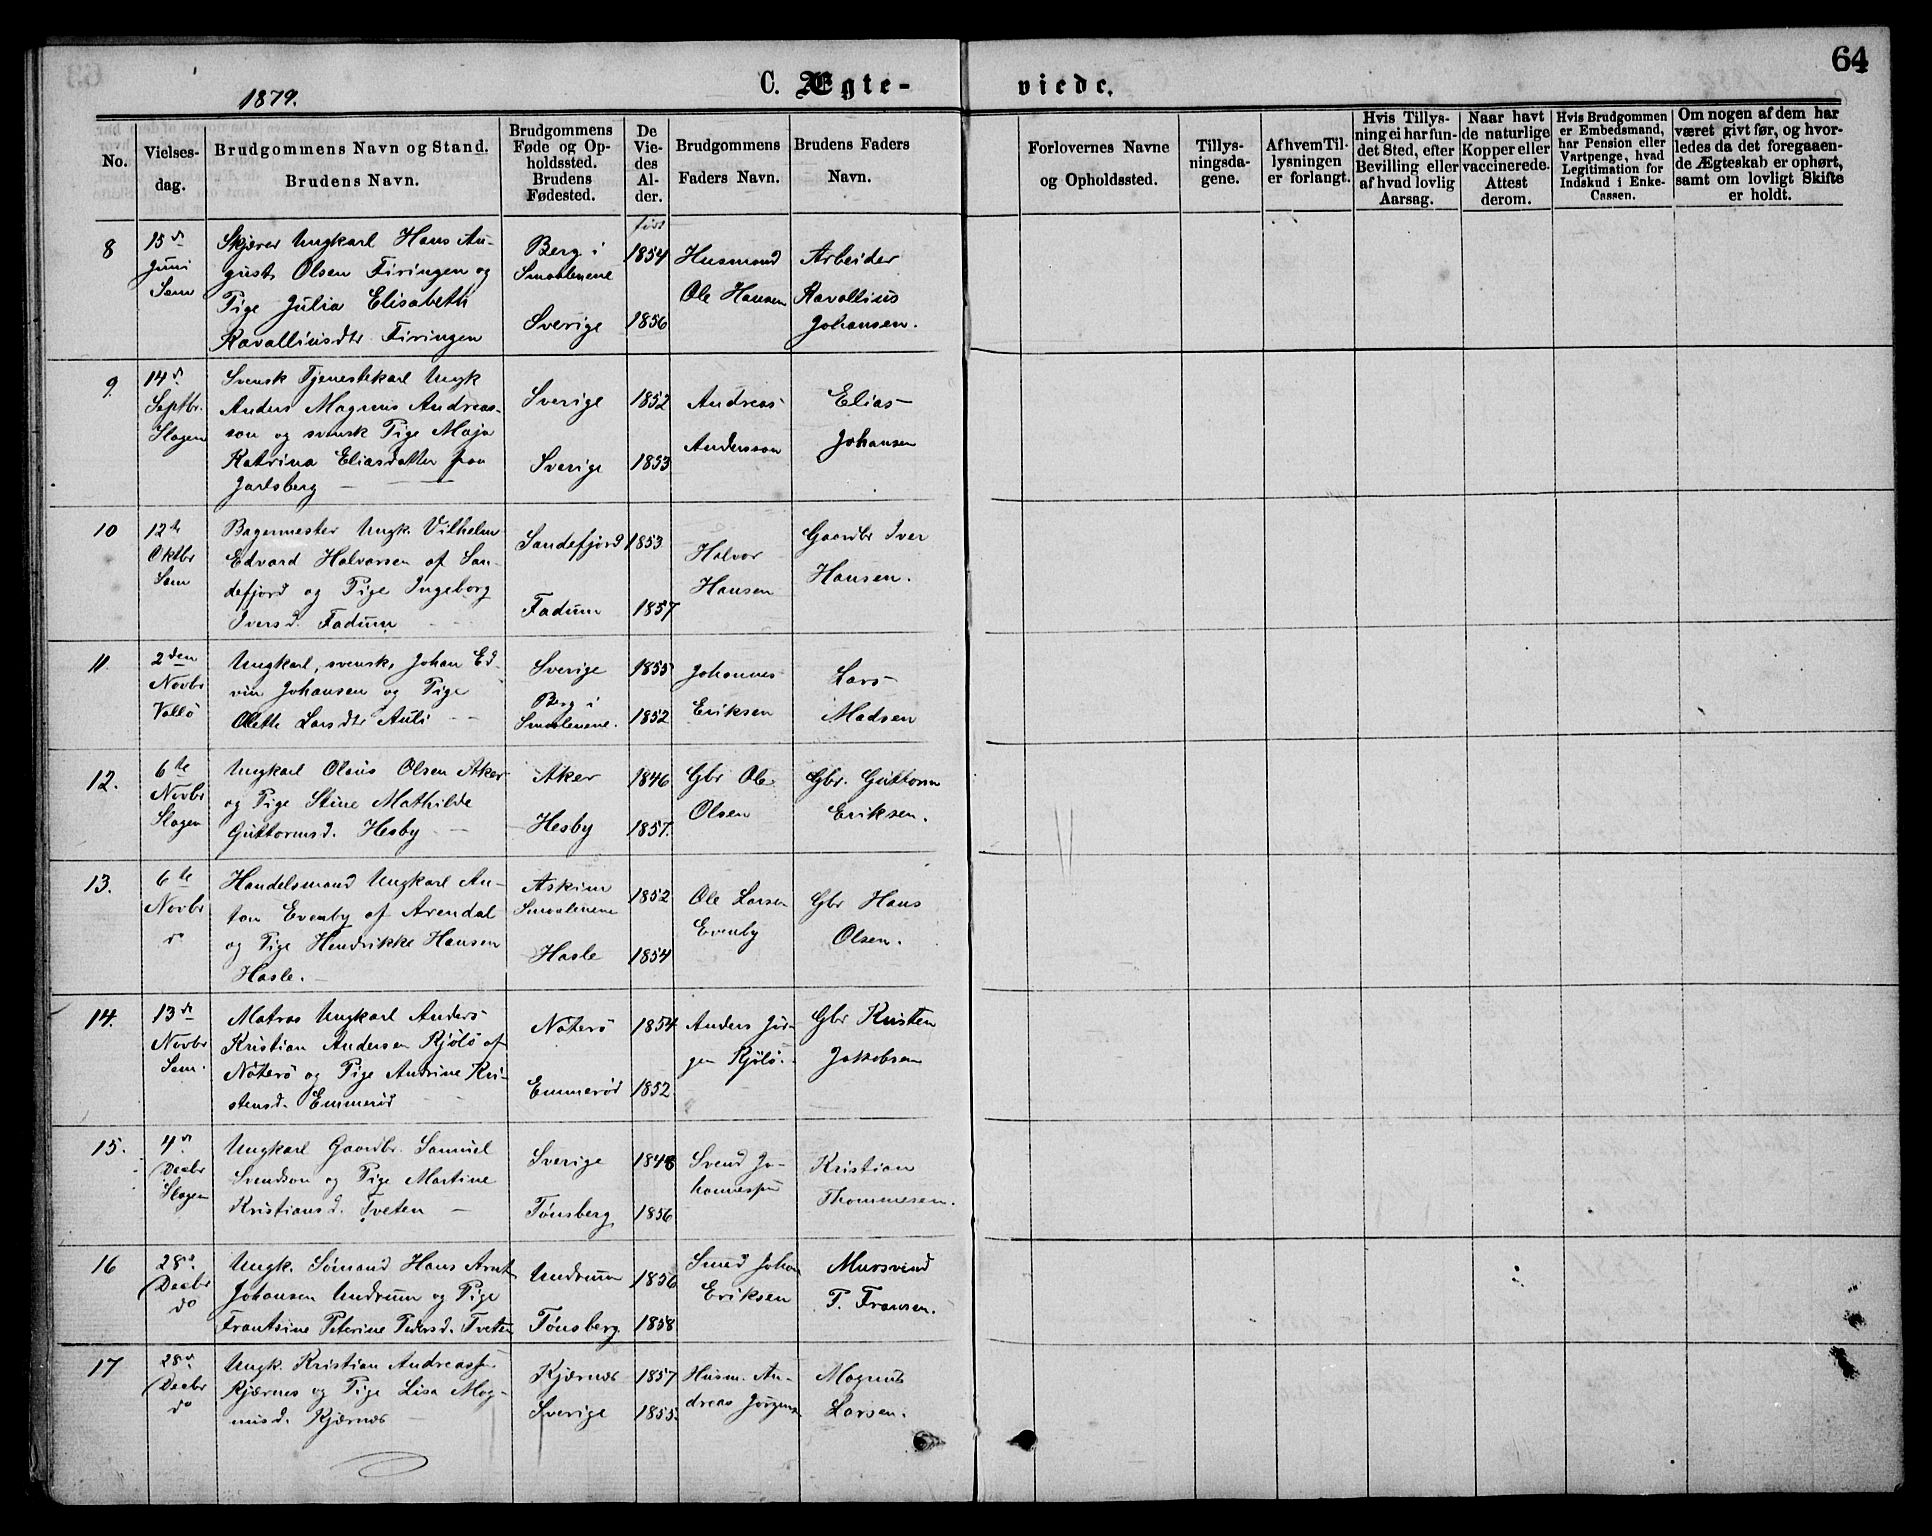 64
1879.
C. Ægte-
viede.
No.
Vielses-
dag.
Brudgommens Navn og Stand.
Brudens Navn.
Brudgommens
Føde og Op-
holdssted.
Brudens
Fødested.
De
Vie-
des
Al-
der.
Brudgommens
Faders Navn.
Brudens Faders
Navn.
Forlovernes Navne
og Opholdssted.
Tillys-
ningsda-
gene.
Af hvem Til-
lysningen
er forlangt.
Hvis Tillys-
ning ei har fun-
det Sted, efter
Bevilling eller
af hvad lovlig
Aarsag.
Naar havt
de naturlige
Kopper eller
vaccinerede.
Attest
derom.
Hvis Brudgommen
er Embedsmand,
har Pension eller
Vartpenge, hvad
Legitimation for
Indskud i Enke-
Cassen.
Om nogen af dem har
været givt før, og hvor-
ledes da det foregaaen-
de Ægteskab er ophørt,
samt om lovligt Skifte
er holdt.
8
15de
Juni
Sem
Skjærer Ungkarl Hans Au-
gust Olsen Firingen og
Pige Julia Elisabeth
Ravalliusdtr Firingen
Berg i
Smaalenene
Sverige
født
1854
1856
Husmand
Ole Hansen
Arbeider
Ravallius
Johansen.
9.
14de
Septbr.
Slagen
Svensk Tjenestekarl Ungk
Anders Magnus Andreas-
son og svensk Pige Maja
Katrina Eliasdatter fra
Jarlsberg
Sverige
Sverige
1852
1853
Andreas
Andersson
Elias
Johansen
10
12te
Oktbr
Sem
Bagermester Ungk. Vilhelm
Edvard Halvorsen af San-
defjord og Pige Ingeborg
Iversd. Fadum
Sandefjord
Fadum
1853
1857
Halvor
Hansen
Gaardbr Iver
Hansen.
11
2den
Novbr
Vallø
Ungkarl, svensk, Johan Ed-
vin Johansen og Pige
Olette Larsdtr Auli
Sverige
Berg i
Smaalenene.
1855
1852
Johannes
Eriksen
Lars
Madsen
12.
6te
Novbr
Slagen
Ungkarl Olaus Olsen Aker
og Pige Stine Mathilde
Guttormsd. Hesby
Aker
Hesby
1846
1857.
Gbr Ole
Olsen
Gbr. Guttorm
Eriksen.
13.
6te
Novbr
do
Handelsmand Ungkarl An-
ton Evenby af Arendal
og Pige Hendrikke Hansen
Hasle.
Askim
Smaalenene
Hasle
1852
1854
Ole Larsen
Evenby
Gbr Hans
Olsen.
14.
13de
Novbr
Sem.
Matros Ungkarl Anders
Kristian Andersen Kjøløs af
Nøterø og Pige Andrine Kri-
stensd. Emmerød
Nøterø
Emmerød
1854
1852
Anders Jør-
gen Kjøløs.
Gbr Kristen
Jakobsen
15.
4de
Decbr
Slagen
Ungkarl Gaardbr. Samuel
Svendson og Pige Martine
Kristiansd. Tveten
Sverige
Tønsberg
1848
1856
Svend Jo-
hannessen
Kristian
Thommesen.
16
28de
Decbr
do
Ungk. Sømand Hans Arnt
Johansen Undrum og Pige
Frantsine Peterine Pedersd. Tveten
Undrum
Tønsberg
1856
1858
Smed Johan
Eriksen
Mursvend
P. Fransen.
17
28de
Decbr
do
Ungk. Kristian Andreass.
Kjærnes og Pige Lisa Mag-
nusd. Kjærnes
Kjærnes
Sverige
1857
1855
Husm. An-
dreas Jørgens
Magnus
Larsen.